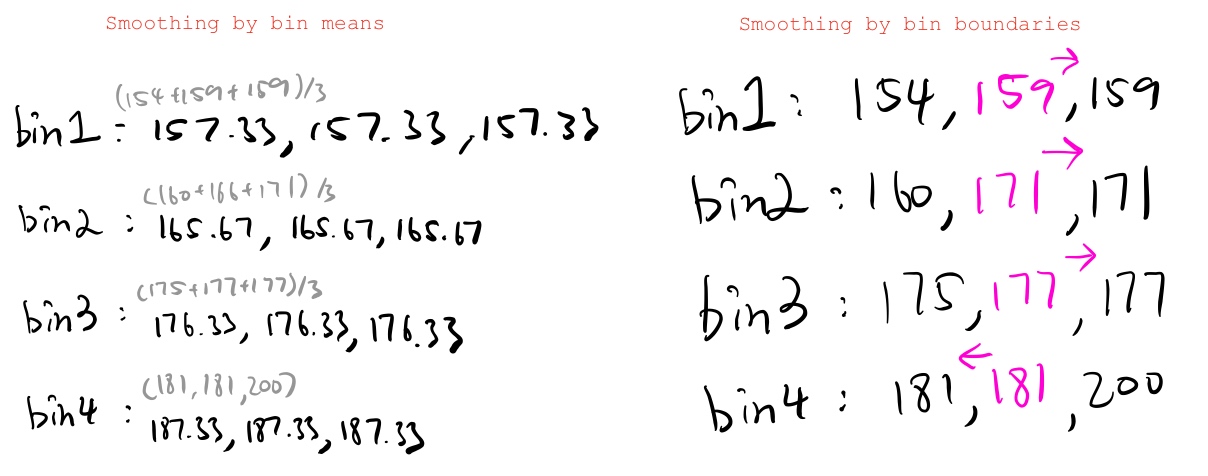 Smoothing by bin means
(154+159+159)/3
bin1: 157.33, 157.33, 157.33
(160+166+171)/3
bin2: 165.67, 165.67, 165.67
(175+177+177)/3
bin3: 176.33, 176.33, 176.33
(181,181,200)
bin4: 187.33, 187.33, 187.33
Smoothing by bin boundaries
bin1: 154, 159, 159
bin2: 160, 171, 171
bin3: 175, 177, 177
bin4: 181, 181, 200